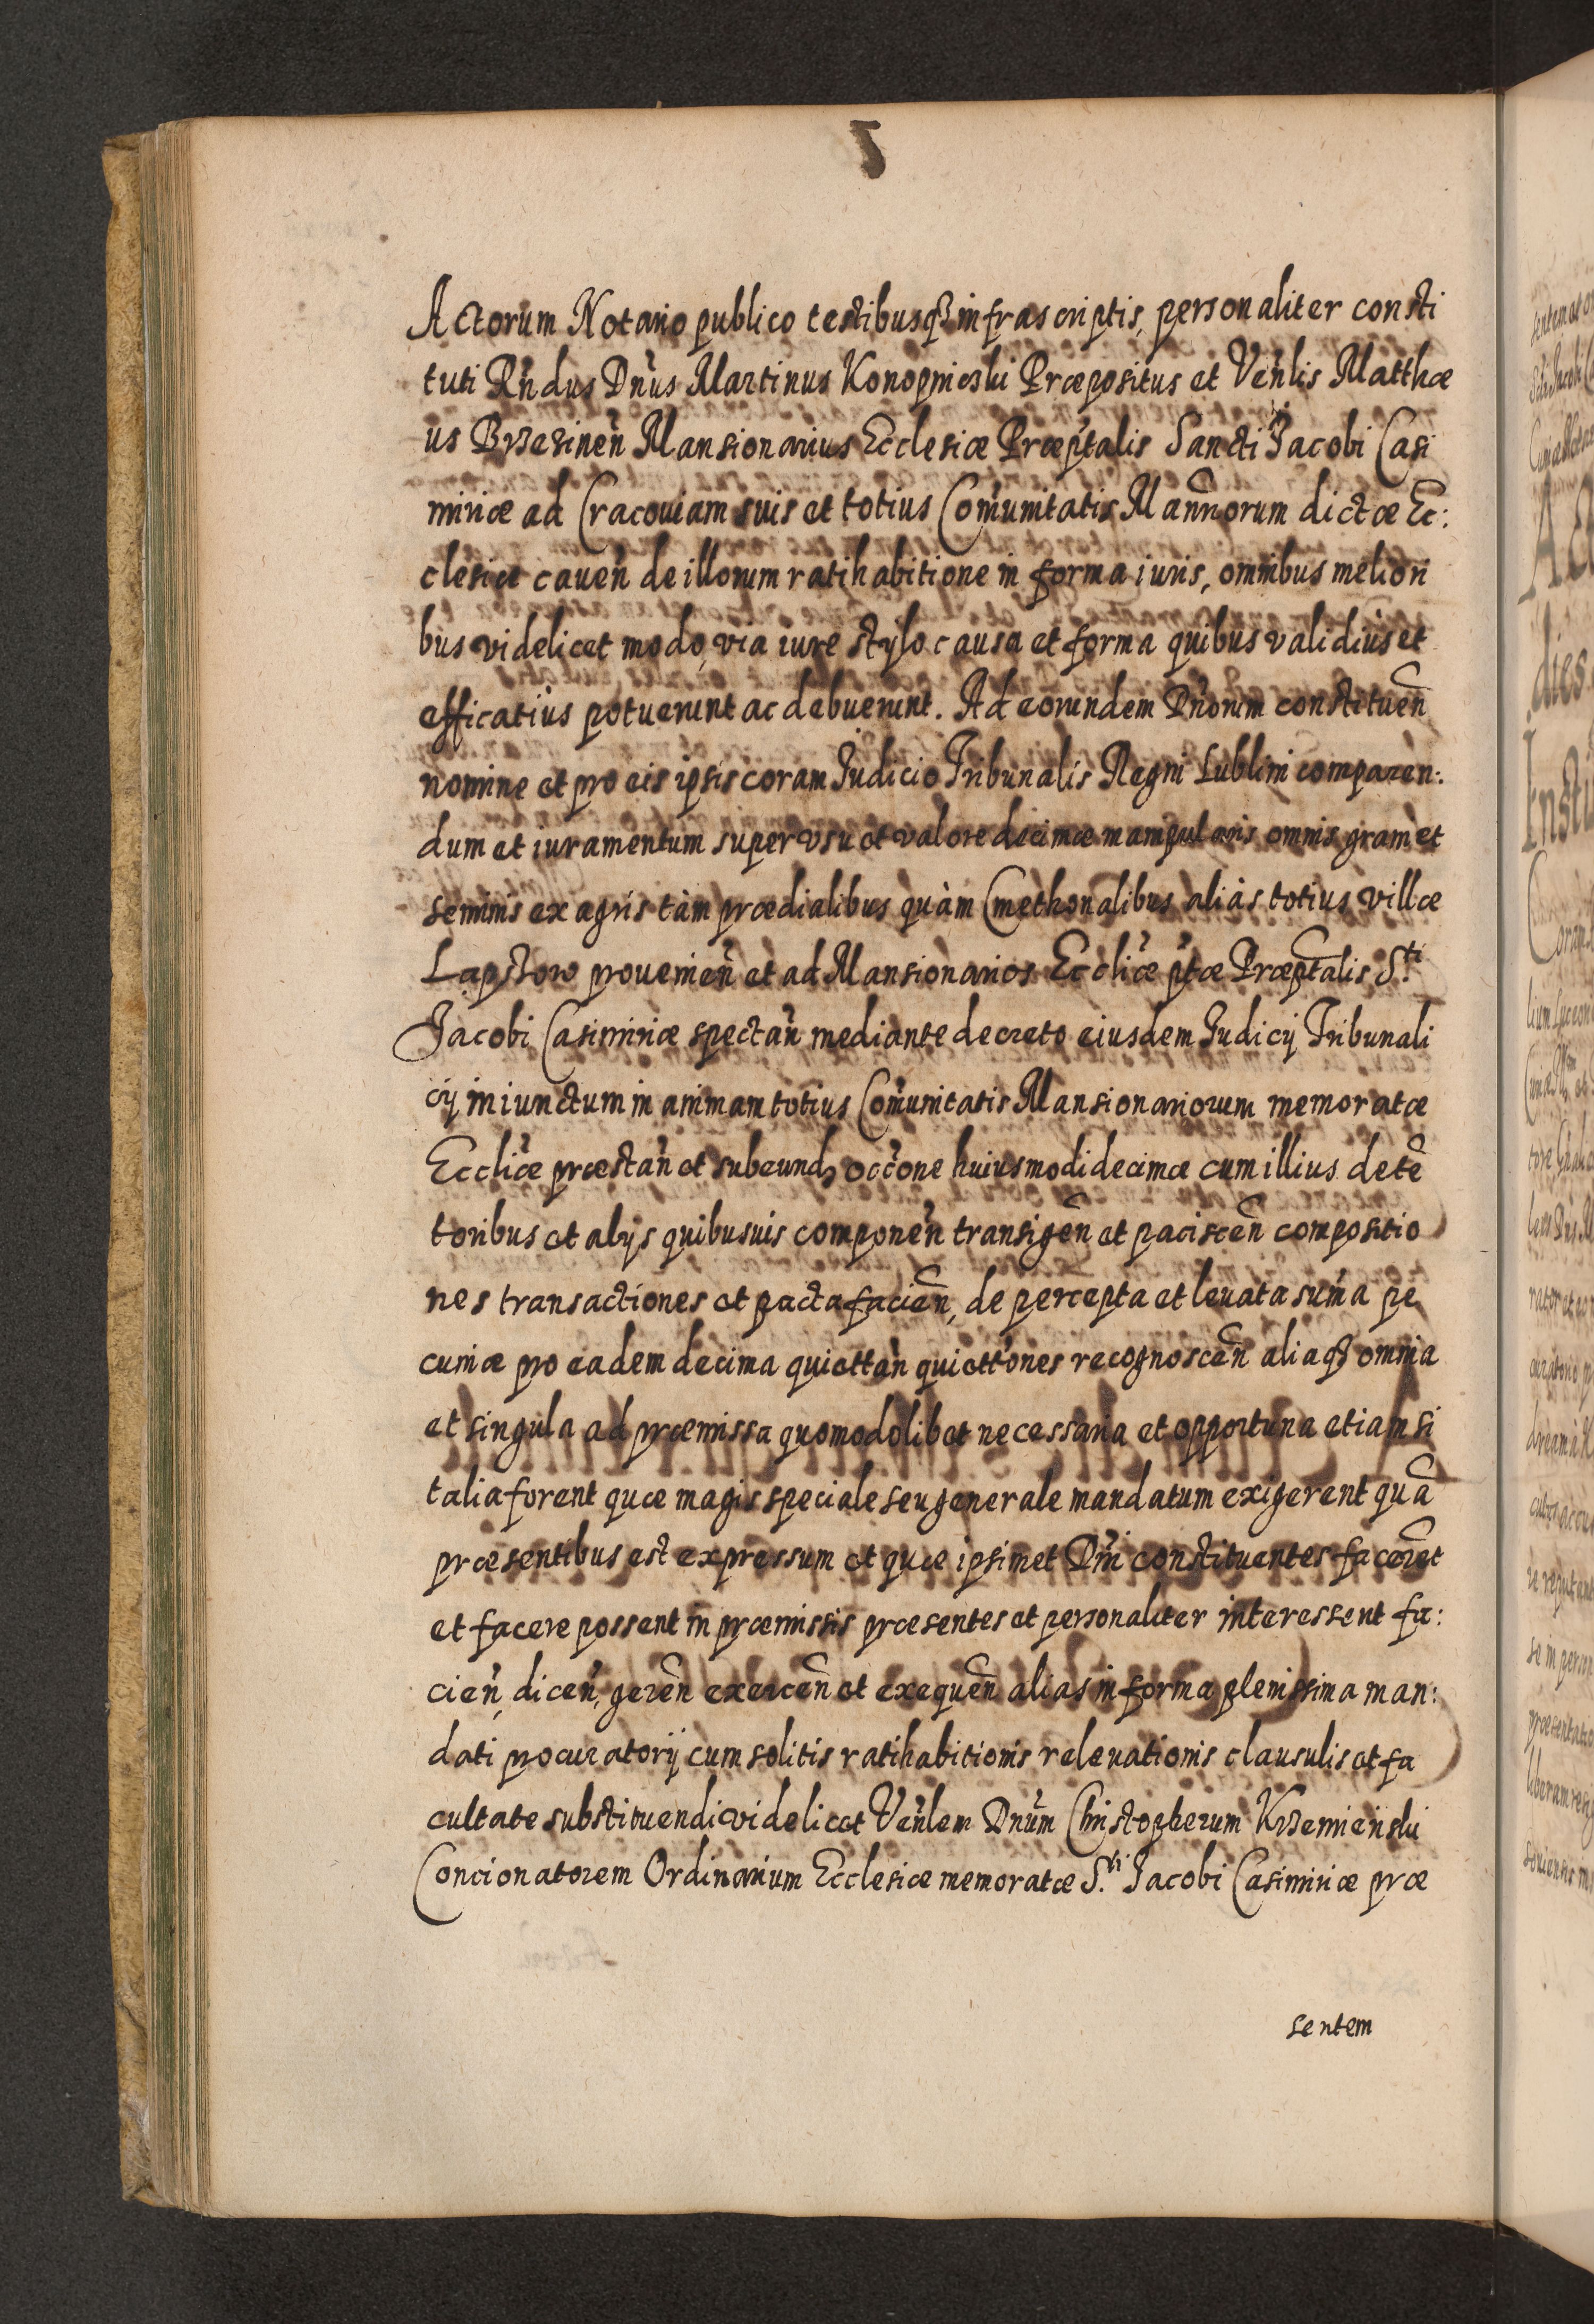 Actorum Notario publico testibusq3 infrascriptis, personaliter consti
tuti Rn̄dus Dn̄us Martinus Konopnicski Præpositus et Ven̄lis Matthæ
us Brzezinen̄ Mansionarius Ecclesiæ Præp̄talis Sancti Jacobi Casi
miriæ ad Cracouiam suis et totius Com̄unitatis Man̄norum dictæ Ec:
clesiæ cauen̄ de illorum ratihabitione in forma iuris, omnibus meliori
bus videlicet modo, via iure stylo causa et forma quibus validius et
efficatius potuerunt ac debuerunt. Ad eorundem Dn̄orum constituen̄
nomine et pro eis ipsis coram Judicio Tribunalis Regni Lublini comparen:
dum et iuramentum super vsu et valore decimæ manipularis omnis grani et
seminis ex agris tàm prædialibus quàm Cmethonalibus aliàs totius villæ
Lapstow prouenien̄ et ad Mansionarios Ecclīæ p̄tæ Præp̄talis S.ti
Jacobi Casimiriæ spectan̄ mediante decreto eiusdem Judicij Tribunali
cij iniunctum in animam totius Com̄unitatis Mansionariorum memoratæ
Ecclīæ præstan̄ et subeund3 occ̄one huiusmodi decimæ cum illius detē
toribus et alijs quibusuis componen̄ transigen̄ et paciscen̄ compositio
nes transactiones et pacta facien̄, de percepta et leuata sum̄a pe
cuniæ pro eadem decima quiettan̄ quiett̄ones recognoscen̄ aliaq3 omnia
et singula ad præmissa quomodolibet necessaria et opportuna etiamsi
talia forent quæ magis speciale seu generale mandatum exigerent quā
præsentibus est expressum et quæ ipsimet Dn̄i constituentes facerēt
et facere possent in præmissis præsentes et personaliter interessent fa:
cien̄, dicen̄, geren̄ exercen̄ et exequen̄ alias in forma plenissima man:
dati procuratorij cum solitis ratihabitionis releuationis clausulis et fa
cultate substituendi videlicet Ven̄lem Dn̄um Christopherum Krzemieński
Concionatorem Ordinarium Ecclesiæ memoratæ S.ti Jacobi Casimiriæ præ
sentem